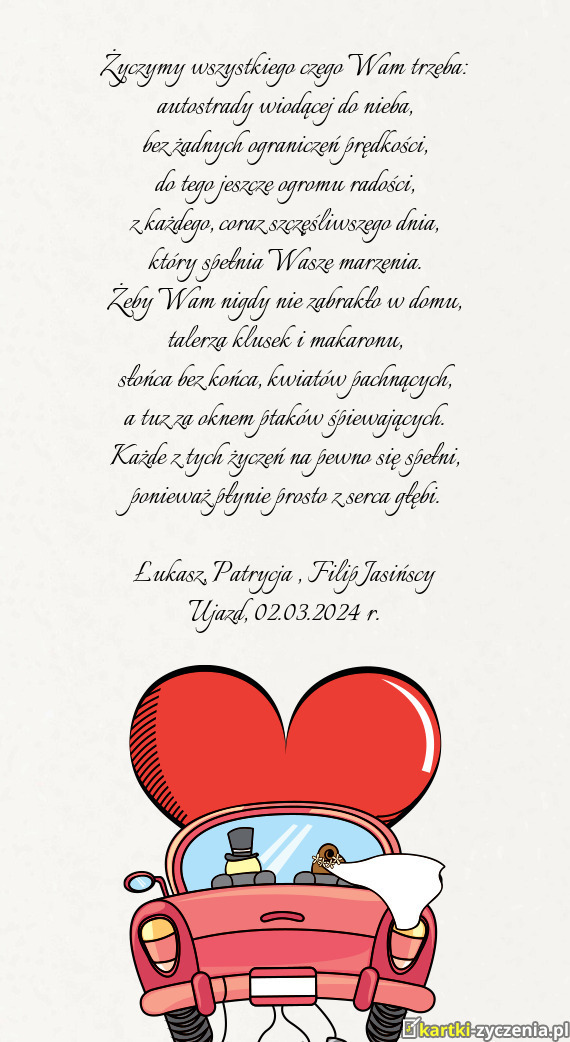 Życzymy wszystkiego czego Wam trzeba:
autostrady wiodącej do nieba,
bez żadnych ograniczeń prędkości,
do tego jeszcze ogromu radości,
z każdego, coraz szczęśliwszego dnia,
który spełnia Wasze marzenia.
Żeby Wam nigdy nie zabrakło w domu,
talerza klusek i makaronu,
słońca bez końca, kwiatów pachnących,
a tuz za oknem ptaków śpiewających.
Każde z tych życzeń na pewno się spełni,
ponieważ płynie prosto z serca głębi.
Łukasz, Patrycja , Filip Jasińscy
Ujazd, 02.03.2024 r.
kartki-zyczenia.pl